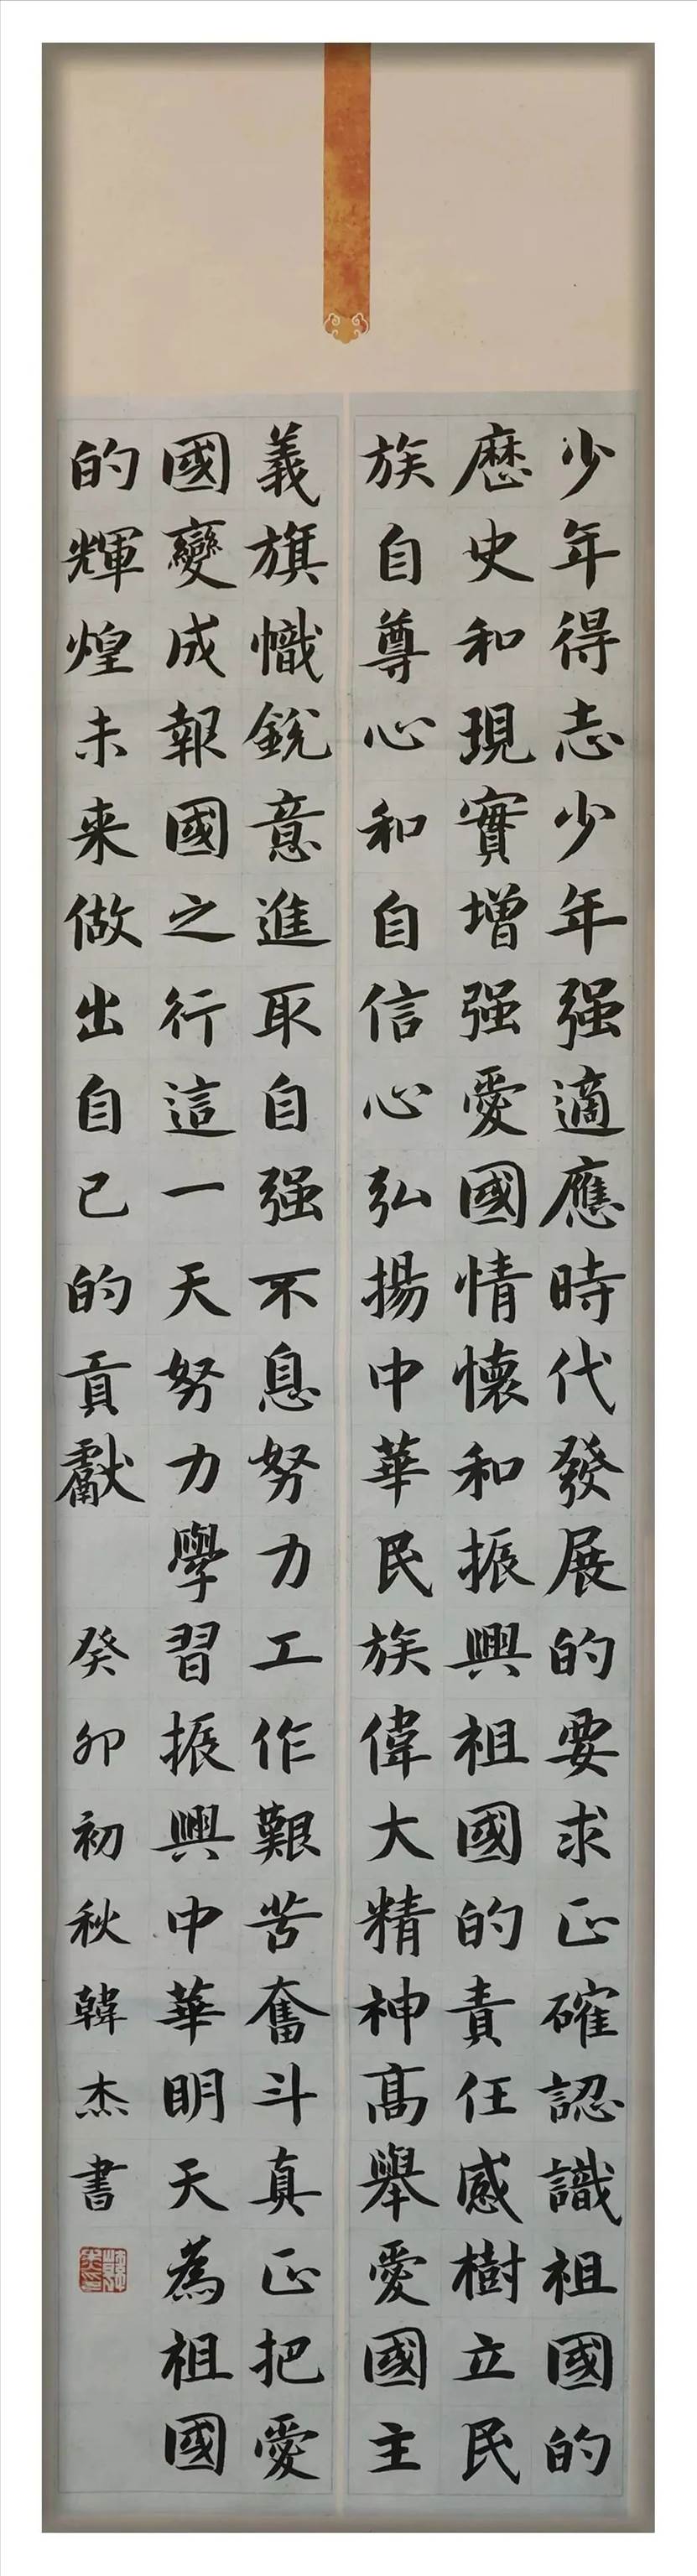 少年得志少年强適應時代發展的要求正確認識祖國的
歷史和現實增强愛國情懷和振興祖國的責任感樹立民
族自尊心和自信心弘揚中華民族偉大精神高舉愛國主
義旗幟銳意進取自强不息努力工作艱苦奮斗真正把愛
國變成報國之行這一天努力學習振興中華明天為祖國
的輝煌未来做出自己的貢獻
癸卯初秋韓杰書